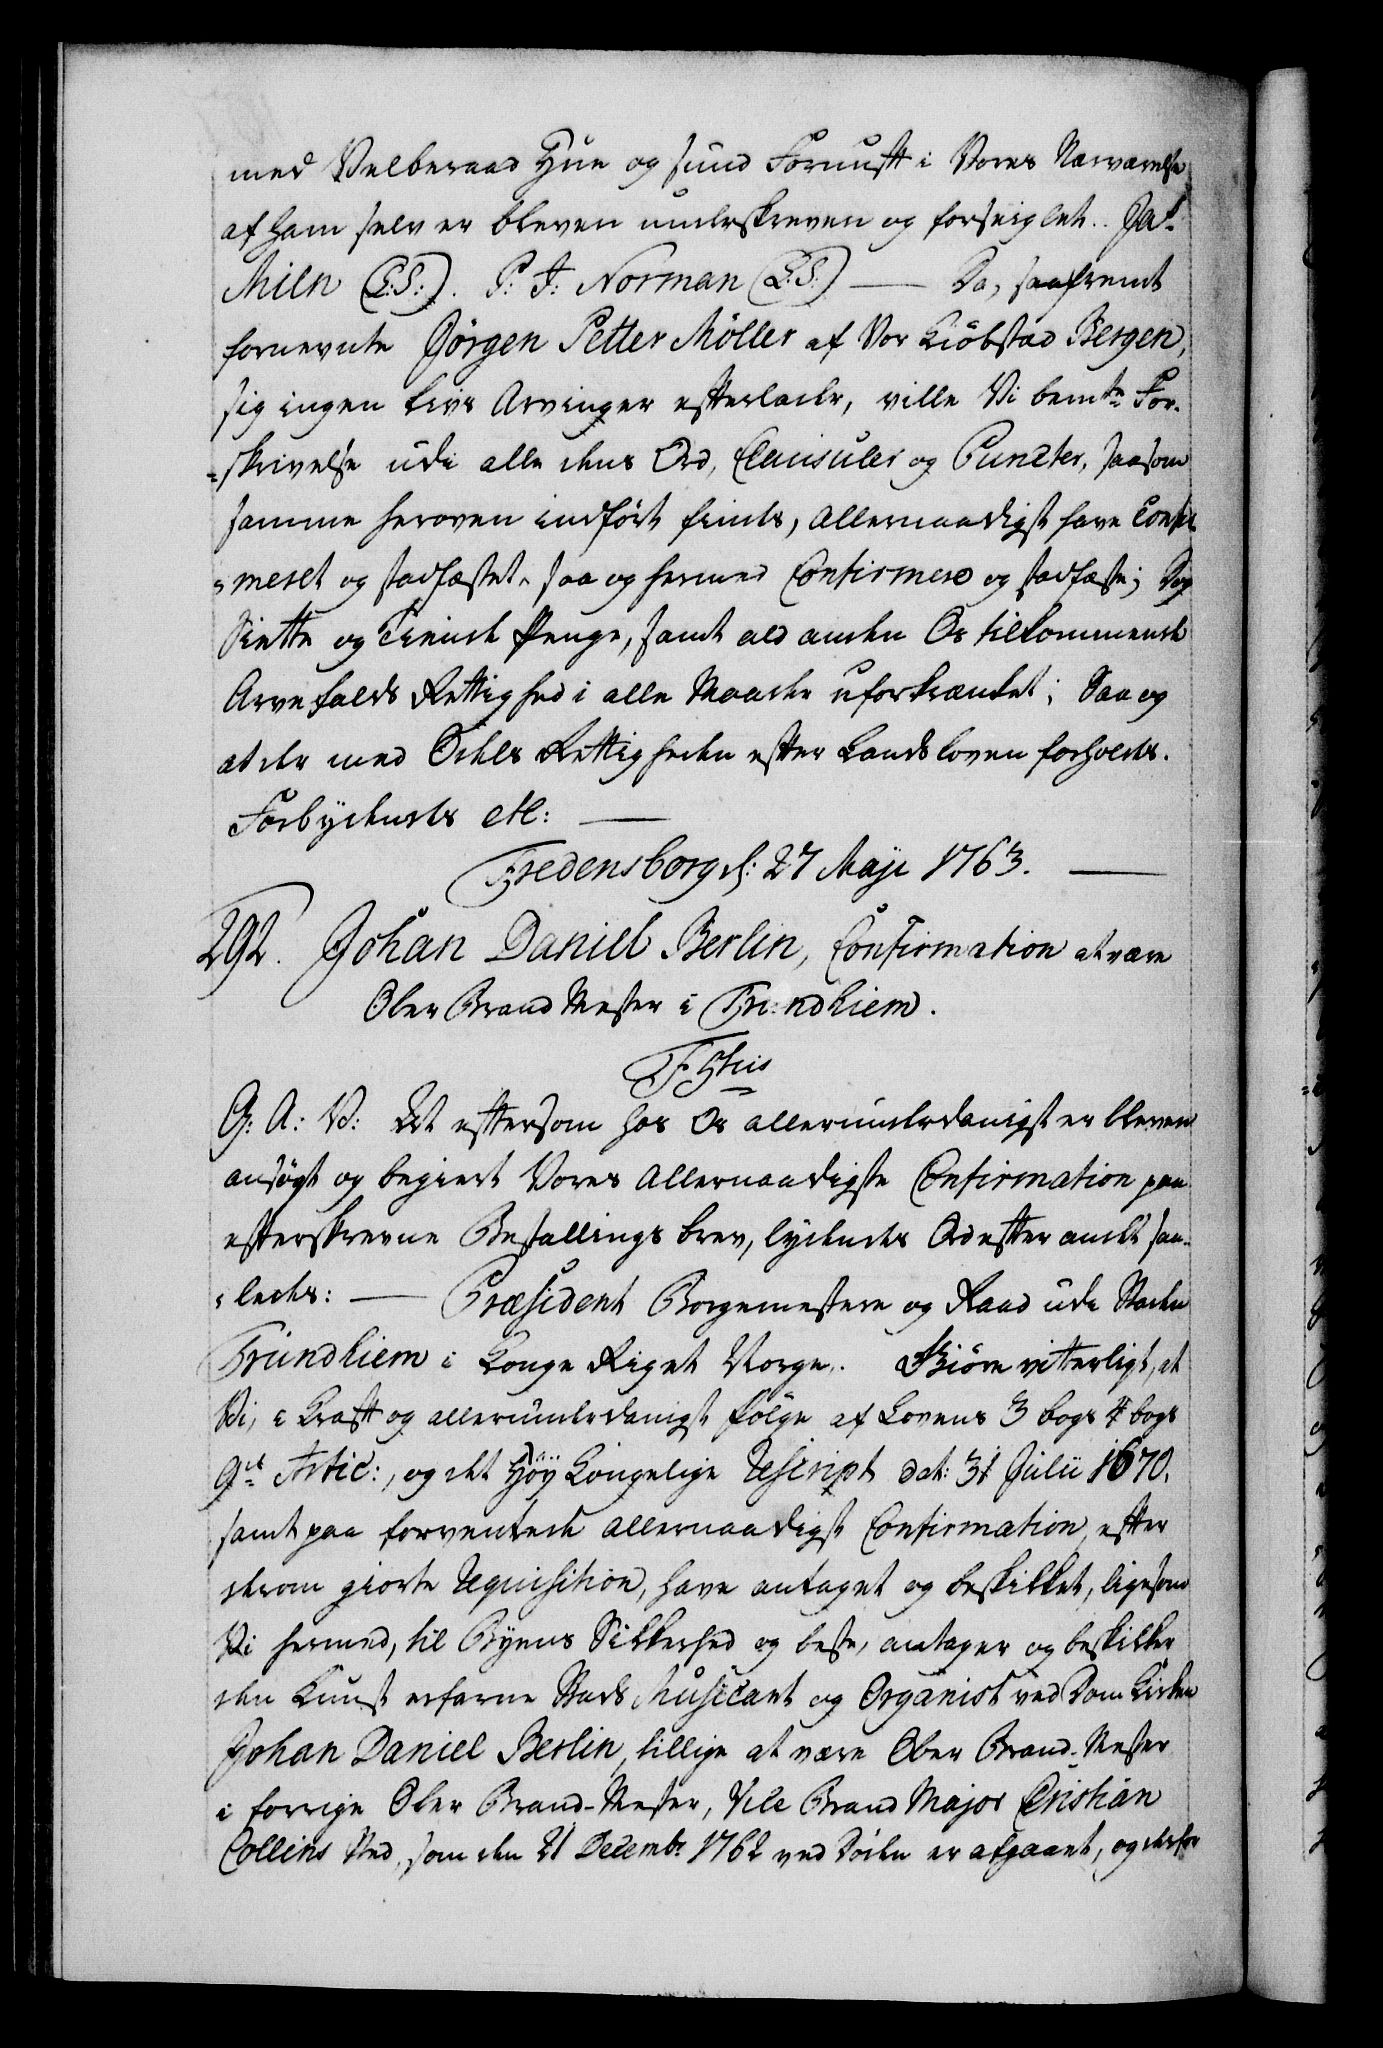 med Velberaad Hue og sund Fornuft i Vores Nærværelse
af ham selv er bleven underskreven og forseiglet. Ja:
Miln (L:S:). P: J: Norman (L:S:) — Da, saafremt
fornevnte Jørgen Petter Möller af Vor Kiöbstad Bergen,
sig ingen Livs Arvinger efterlader, ville Vi bemte For-
=skrivelse udi alle dens Ord, Clausuler og Puncter, saasom
samme heroven indfört findes, allernaadigst have Confir
=meret og stadfæstet, saa og hermed Confirmere og stadfæste; Dog
Siette og Tiende Penge, samt ald anden Os tilkommende
Arvefalds Rettighed i alle Maader uforkrænket; Saa og
at der med Odels Rettigheden efter Landsloven forholdes.
Forbydendes etc: —
Fredensborg d: 27 Maji 1763. —
292. Johan Daniel Berlin, Confirmation at være
Ober Brand Mester i Trundhiem.
F 5tus
G: A: V: At eftersom hos Os allerunderdanigst er bleven
ansögt og begiert Vores Allernaadigste Confirmation paa
efterskrevne Bestallings brev, lydendes Ord efter andet saa-
=ledes: — Præsident Borgemestere og Raad udi Staden
Trundhiem i Konge Riget Norge. Kiöre vitterligt, at
Vi, i Kraft og allerunderdanigst fölge af Lovens 3 bogs 4 bogs
9de Artic:, og det Höy Kongelige Rescript dat: 31 Julii 1670.
samt paa forventede allernaadigst Confirmation, efter
derom giorte Requisition, have antaget og beskikket, ligesom
Vi hermed, til Byens Sikkerhed og beste, antager og beskikker
den Kunst erfarne Stads Musicant og Organist ved Dom Kirken
Johan Daniel Berlin, tillige at være Ober Brand-Mester
i forrige Ober Brand-Mester, Vice Brand Major Cristian
Collins Sted, som den 21 Decembr 1762 ved Döden er afgaaet, og derfor